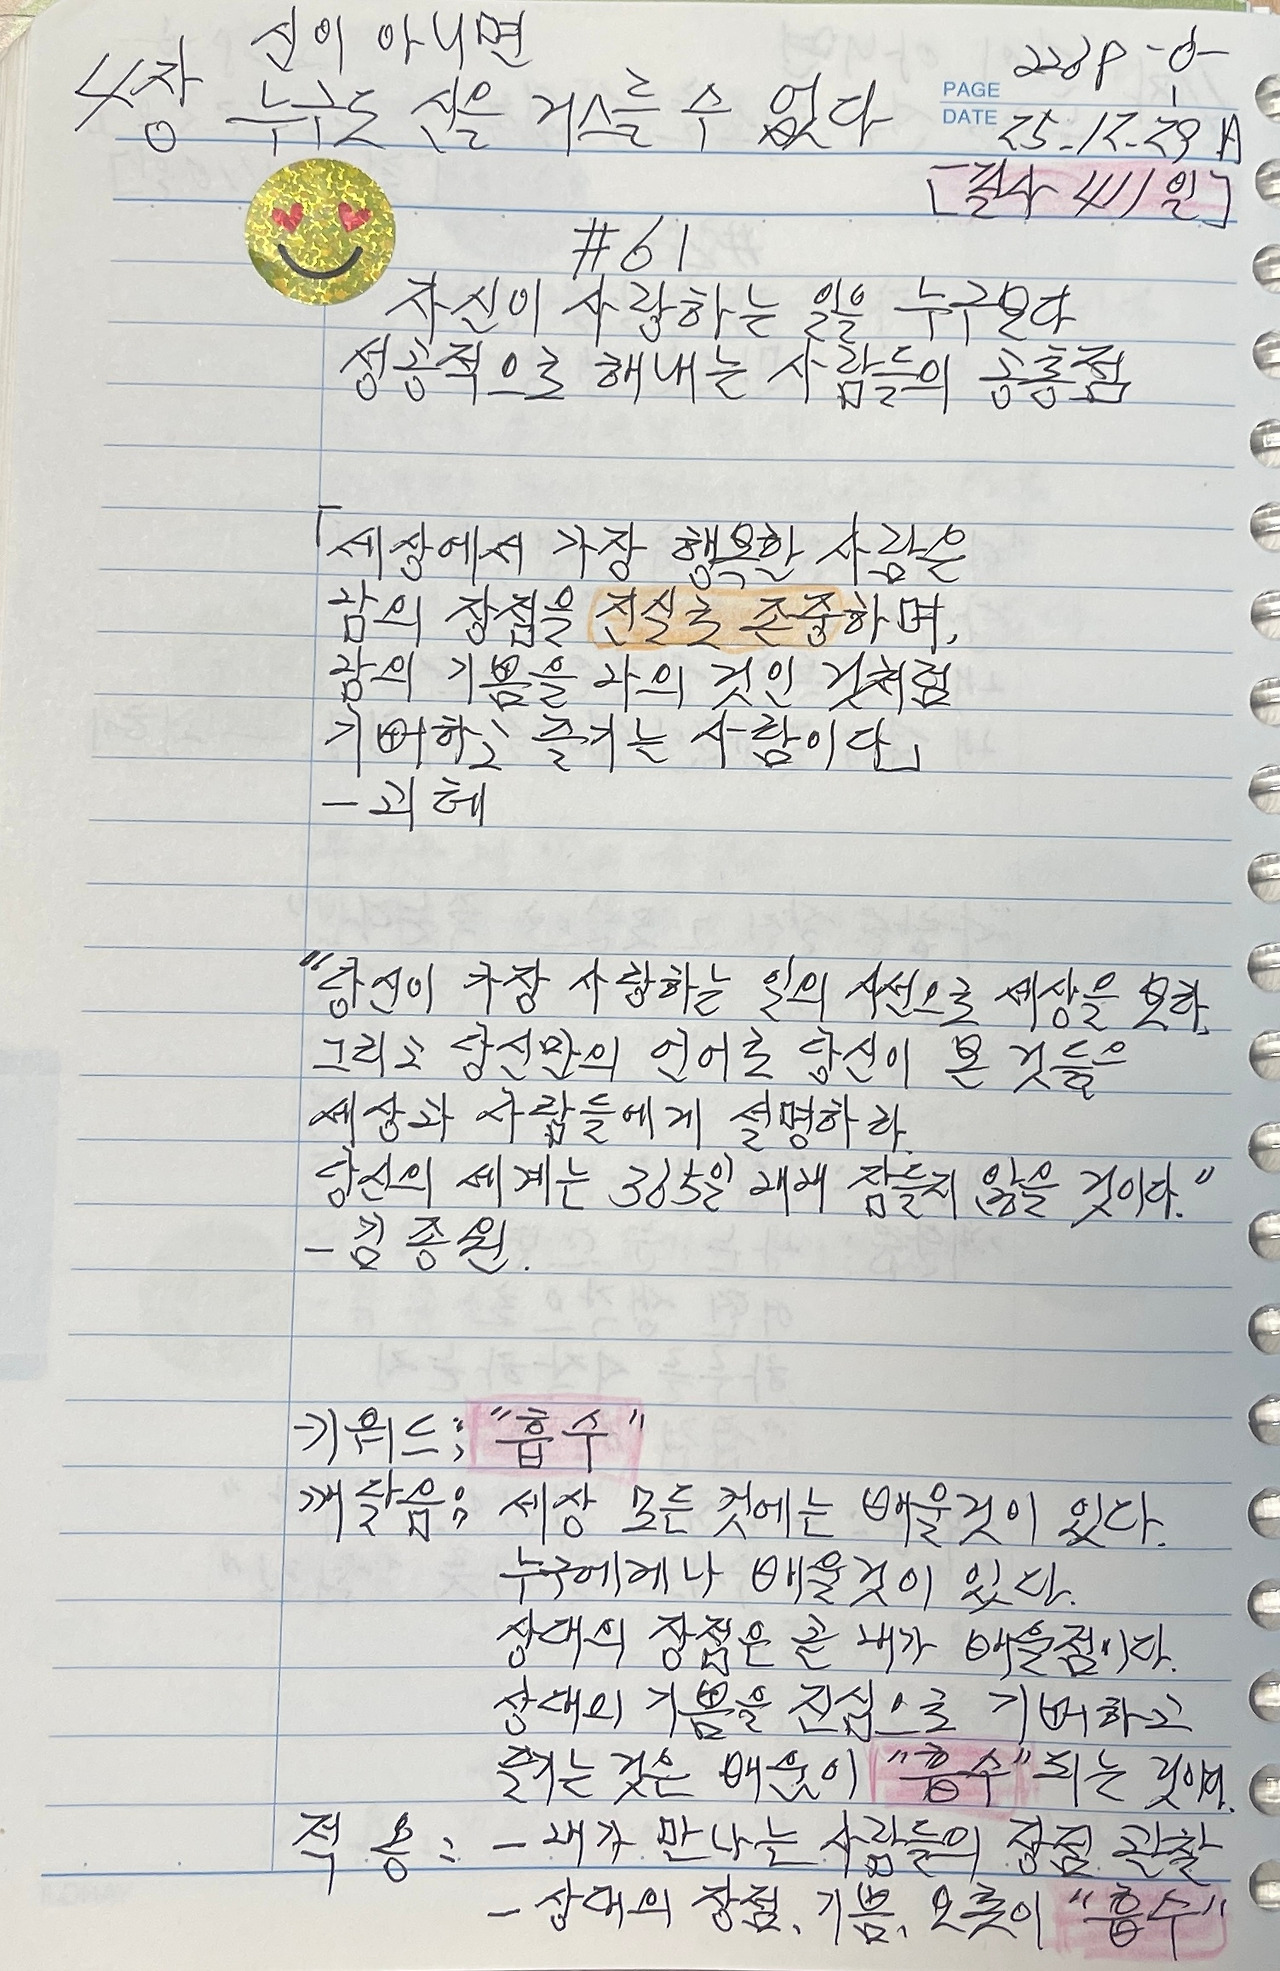 신이 아니면
4장 누구도 신을 거스를 수 없다
228P
PAGE
DATE 25.12.29
[필사 411일]
#61
자신이 사랑하는 일을 누구보다
성공적으로 해내는 사람들의 공통점
「세상에서 가장 행복한 사람은
남의 장점을 진실로 존중하며,
남의 기쁨을 나의 것인 것처럼
기뻐하고 즐기는 사람이다」
- 괴테
"당신이 가장 사랑하는 일의 시선으로 세상을 보라.
그리고 당신만의 언어로 당신이 본 것들을
세상과 사람들에게 설명하라.
당신의 세계는 365일 내내 잠들지 않을 것이다."
- 김종원.
키워드; "흡수"
깨달음; 세상 모든 것에는 배울것이 있다.
누구에게나 배울것이 있다.
상대의 장점은 곧 내가 배울점이다.
상대의 기쁨을 진심으로 기뻐하고
즐기는 것은 배움이 "흡수"되는 것이다.
적용: - 내가 만나는 사람들의 장점 관찰
- 상대의 장점, 기쁨, 오롯이 "흡수"